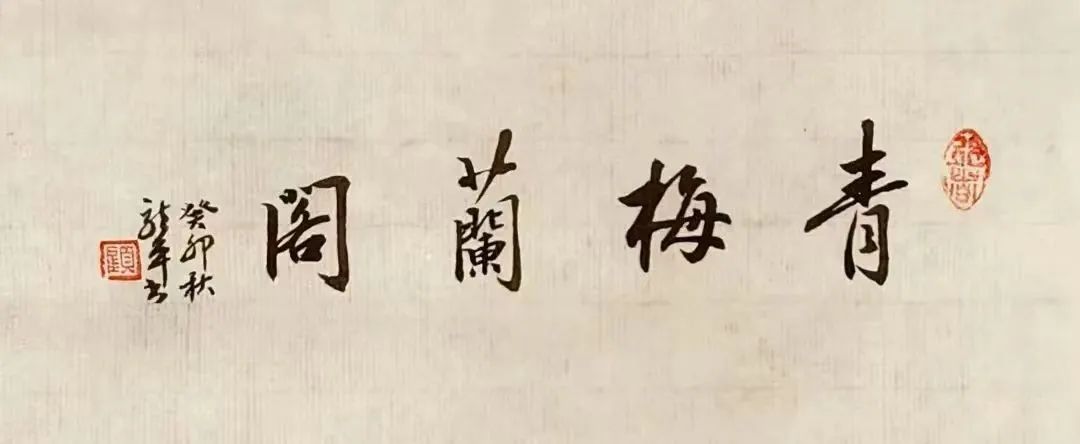 青梅蘭閣
癸卯秋
龍年书
顧